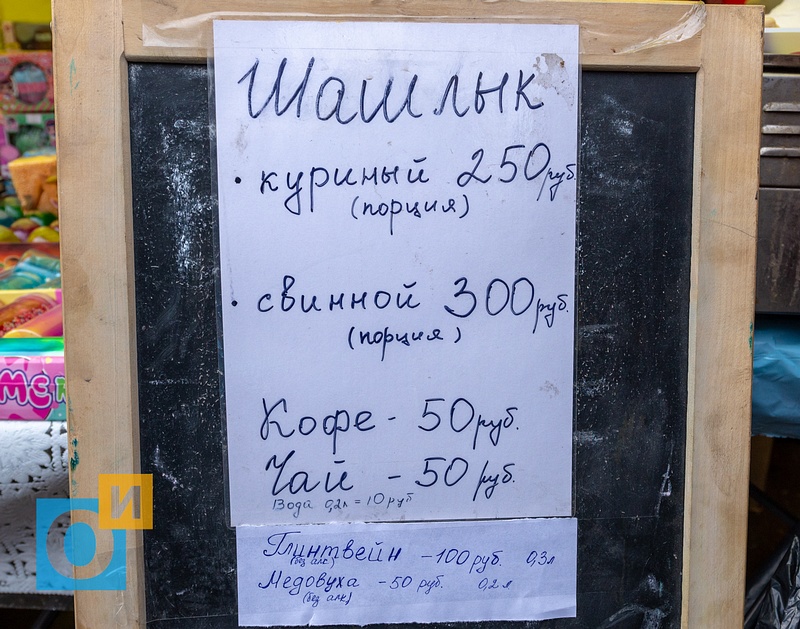 Шашлык
• куриный 250 руб.
(порция)
• свинной 300 руб.
(порция)
Кофе - 50 руб.
Чай - 50 руб.
Вода 0,2л = 10 руб
Глинтвейн - 100 руб. 0,3л
(без алк.)
Медовуха - 50 руб. 0,2л
(без алк)
ОИ